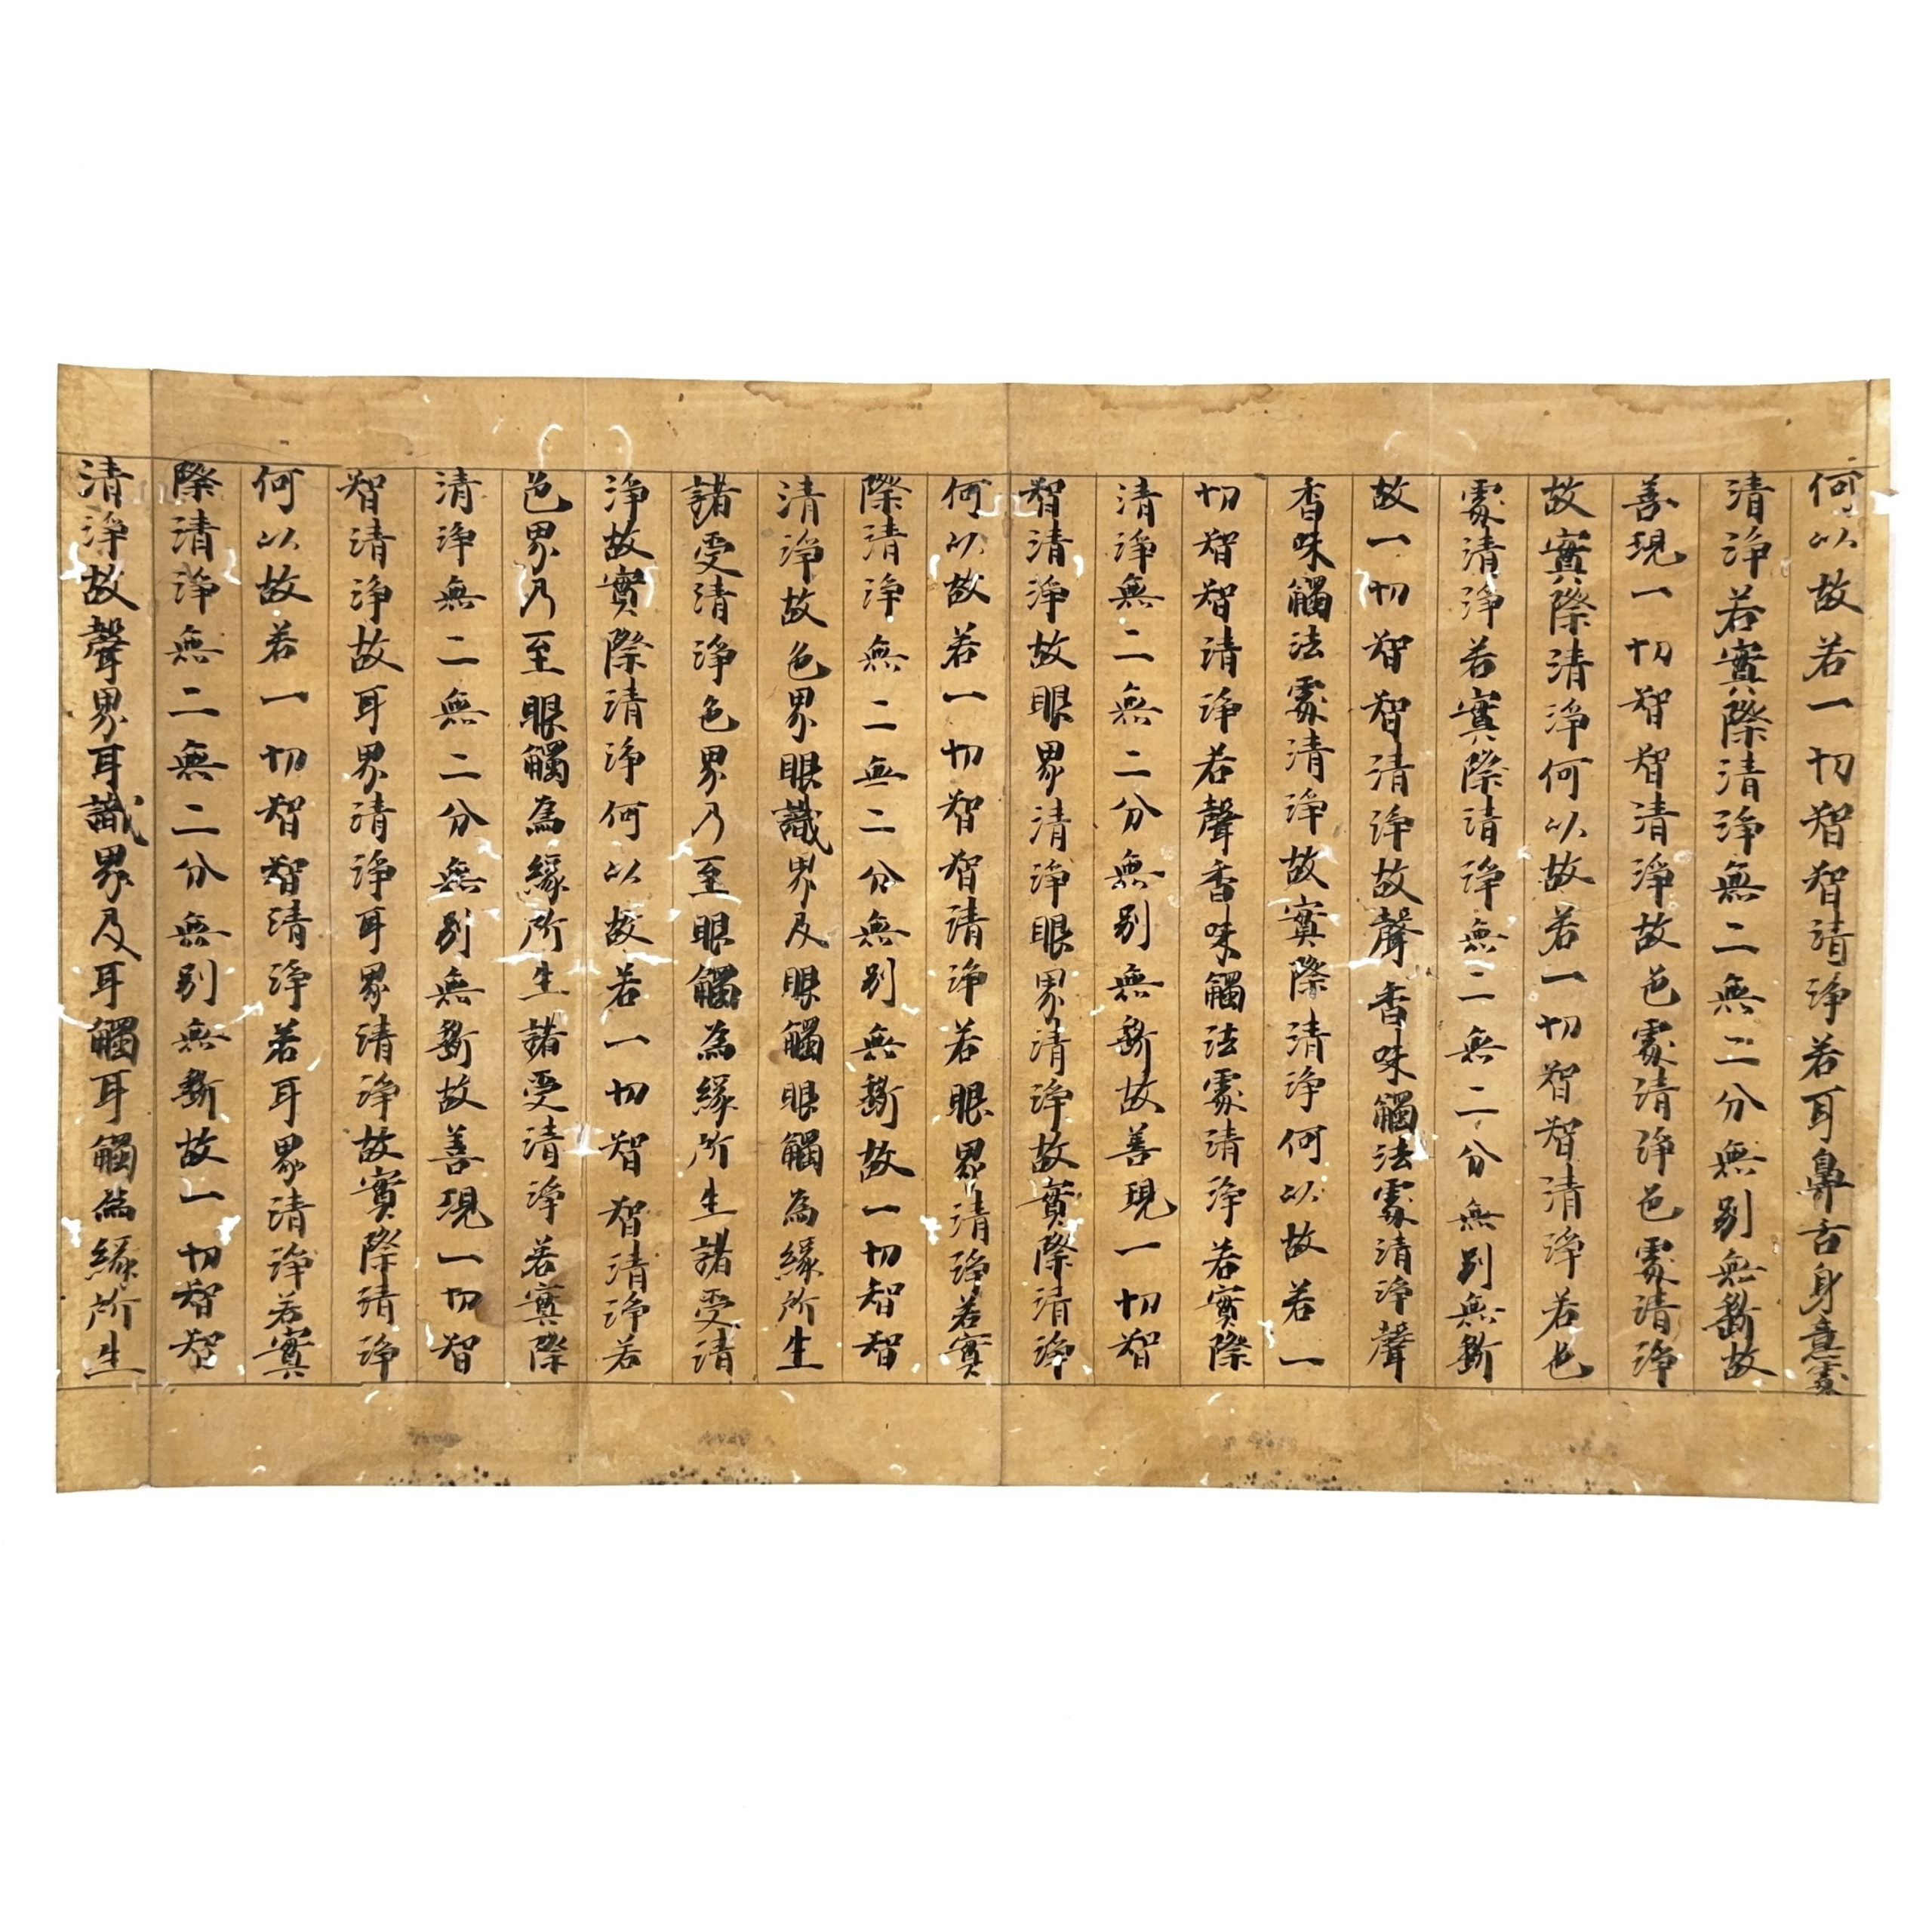 何以故若一切智智清淨若耳鼻舌身意處
清淨若實際清淨無二無二分無別無斷故
善現一切智智清淨故色處清淨色處清淨
故實際清淨何以故若一切智智清淨若色
處清淨若實際清淨無二無二分無別無斷
故一切智智清淨故聲香味觸法處清淨聲
香味觸法處清淨故實際清淨何以故若一
切智智清淨若聲香味觸法處清淨若實際
清淨無二無二分無別無斷故善現一切智
智清淨故眼界清淨眼界清淨故實際清淨
何以故若一切智智清淨若眼界清淨若實
際清淨無二無二分無別無斷故一切智智
清淨故色界眼識界及眼觸眼觸為緣所生
諸受清淨色界乃至眼觸為緣所生諸受清
淨故實際清淨何以故若一切智智清淨若
色界乃至眼觸為緣所生諸受清淨若實際
清淨無二無二分無別無斷故善現一切智
智清淨故耳界清淨耳界清淨故實際清淨
何以故若一切智智清淨若耳界清淨若實
際清淨無二無二分無別無斷故一切智智
清淨故聲界耳識界及耳觸耳觸為緣所生